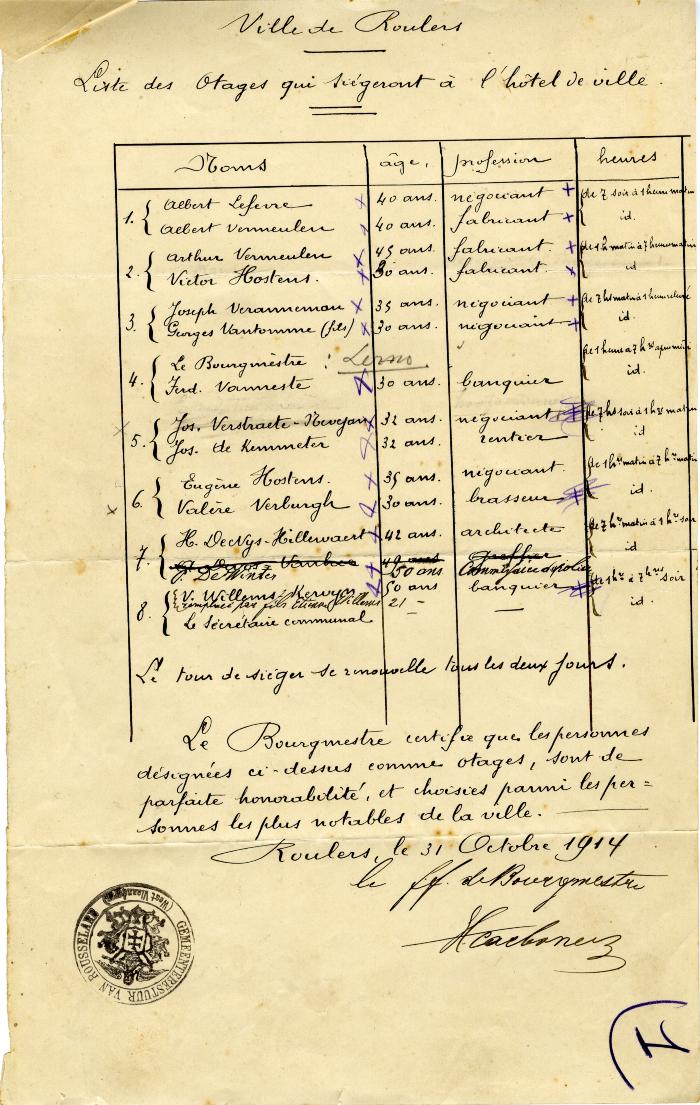 Ville de Roulers
Liste des Otages qui siégeront à l'hôtel de ville.
Noms âge, profession heures
1. Albert Lefevre 40 ans. négociant de 7 soir à 1 heure matin
Albert Vermeulen 40 ans. fabricant id.
2. Arthur Vermeulen 45 ans. fabricant. de 1 h matin à 7 heures matin
Victor Hostens. 30 ans. fabricant. id
3. Joseph Veranneman 35 ans. négociant de 7 hrs matin à 1 heure
Georges Vantomme (fils) 30 ans. négociant id.
4. Le Bourgmestre : Lerno de 1 heure à 7 hrs
Ferd. Vanneste 30 ans. banquier id.
5. Jos. Verstraete-Nevejan 32 ans. négociant de 7 hrs soir à 1 hre matin
Jos. de Kemmeter 32 ans. rentier id
6. Eugène Hostens. 35 ans. négociant. de 1 hre matin à 7 hrs matin
Valère Verburgh 30 ans. brasseur id.
7. H. DeNys-Hillewaert 42 ans. architecte de 7 hrs matin à 1 hre soir
40 ans greffier id
DeWinter 50 ans. Commissaire de police
8. V. Willems-Kerwyn 50 ans banquier de 1 hre à 7 hrs soir
remplacé par fils Etienne Willems 21 -
Le Secrétaire communal — id.
Le tour de siéger se renouvelle tous les deux jours.
Le Bourgmestre certifie que les personnes
désignées ci-dessus comme otages, sont de
parfaite honorabilité, et choisies parmi les per=
sonnes les plus notables de la ville.
Roulers, le 31 Octobre 1914
le ff. de Bourgmestre
GEMEENTEBESTUUR VAN ROUSSELARE
(West Vlaanderen)
I